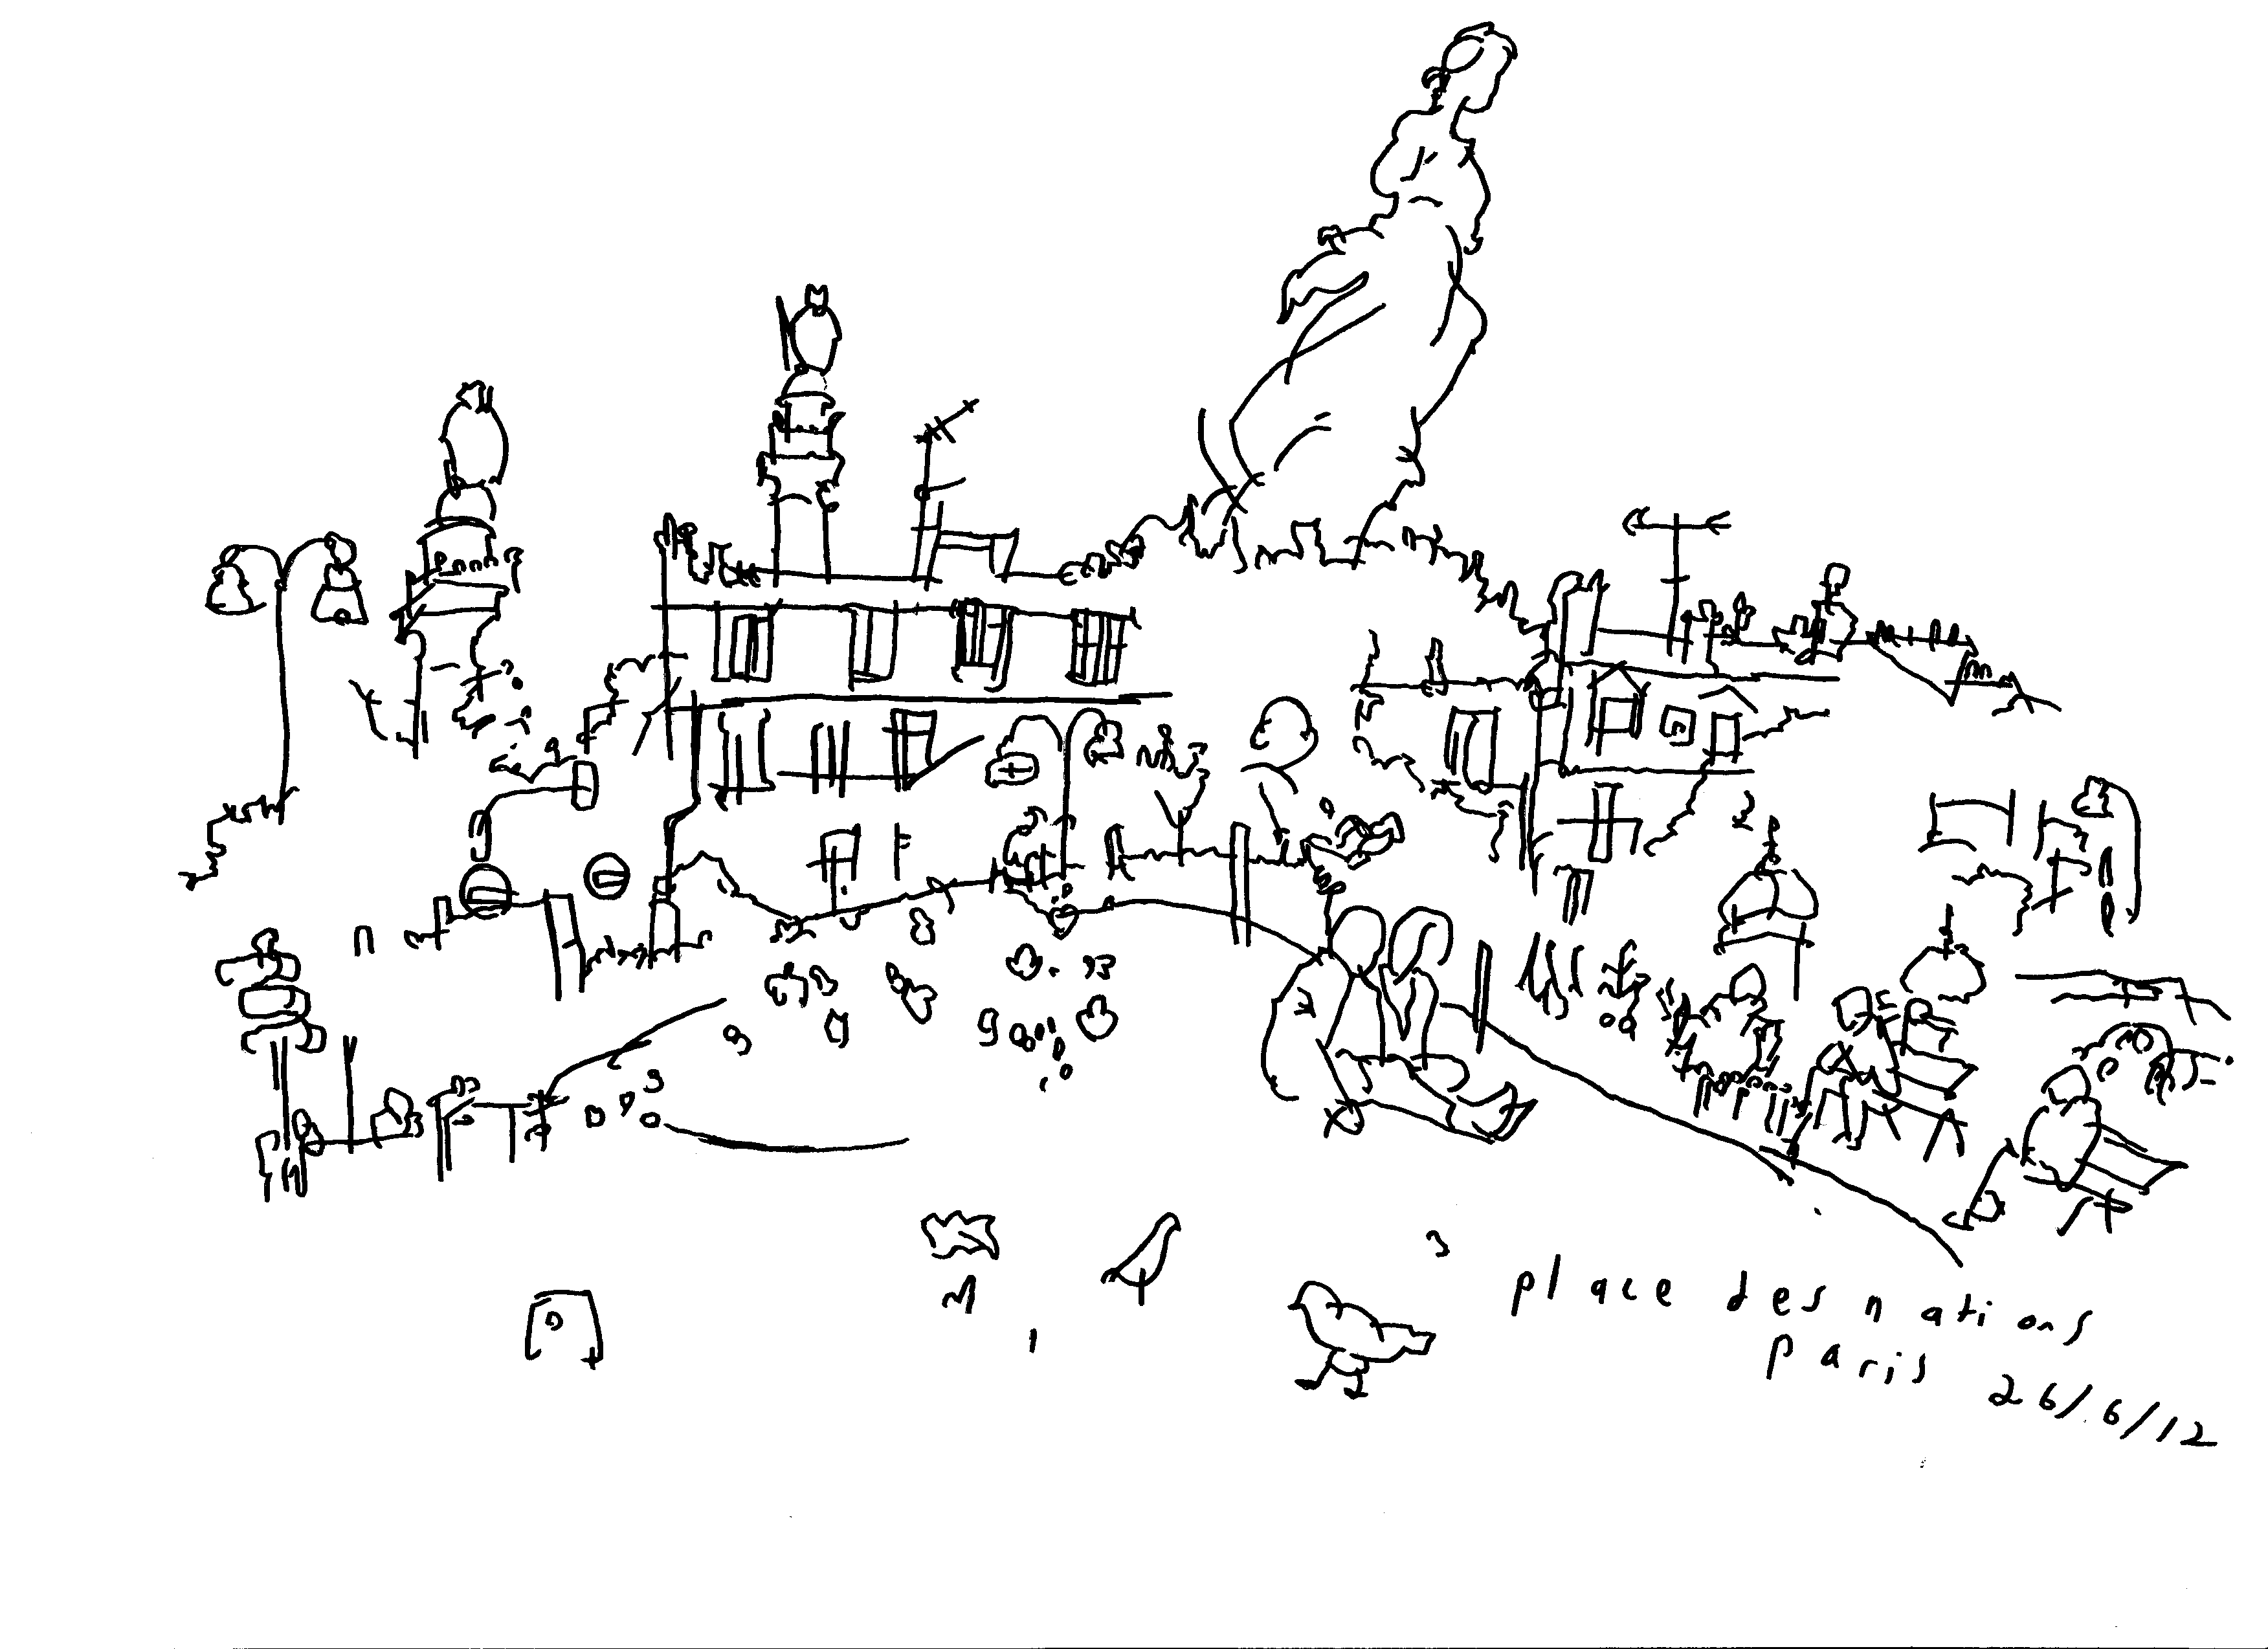 place des nations
paris
26/6/12